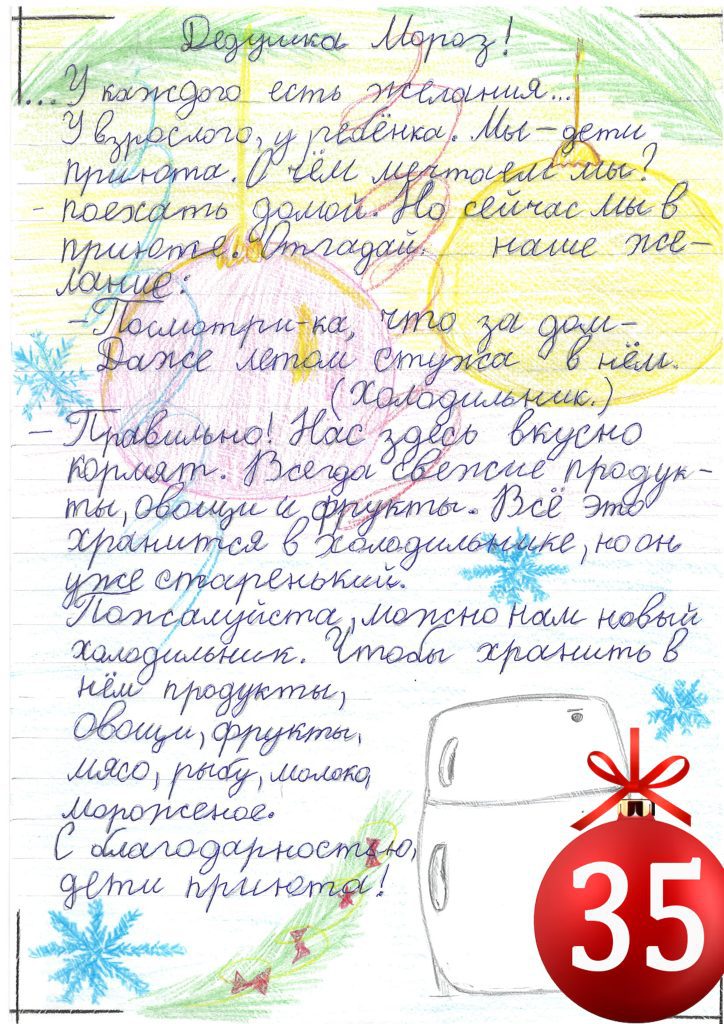 Дедушка Мороз!
...У каждого есть желания...
У взрослого, у ребёнка. Мы – дети
приюта. О чём мечтаем мы?
- поехать домой. Но сейчас мы в
приюте. Отгадай наше же-
лание:
- Посмотри-ка, что за дом –
Даже летом стужа в нём.
(Холодильник.)
- Правильно! Нас здесь вкусно
кормят. Всегда свежие продук-
ты, овощи и фрукты. Всё это
хранится в холодильнике, но он
уже старенький.
Пожалуйста, можно нам новый
холодильник. Чтобы хранить в
нём продукты,
овощи, фрукты,
мясо, рыбу, молоко,
мороженое.
С благодарностью,
дети приюта!
35